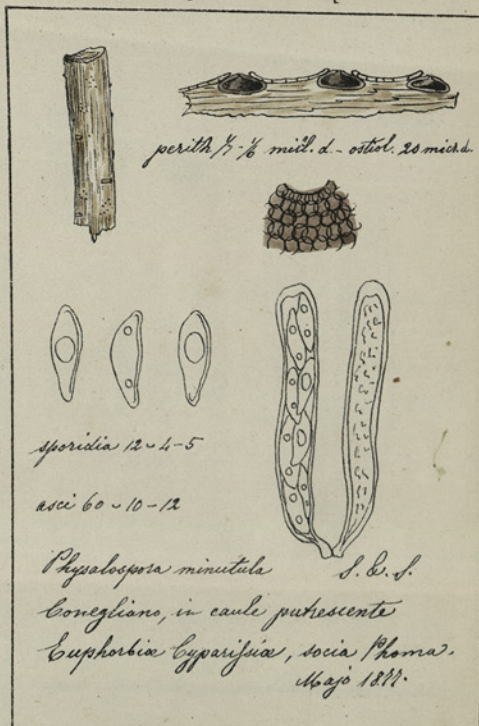 perith 1/5-1/6 mill. d. - ostiol. 20 micr. d.
sporidia 12 ~ 4-5
asci 60 ~ 10-12
Physalospora minutula S. & S.
Conegliano, in caule putrescente
Euphorbiæ Cyparissiæ, socia Phoma.
Majo 1877.